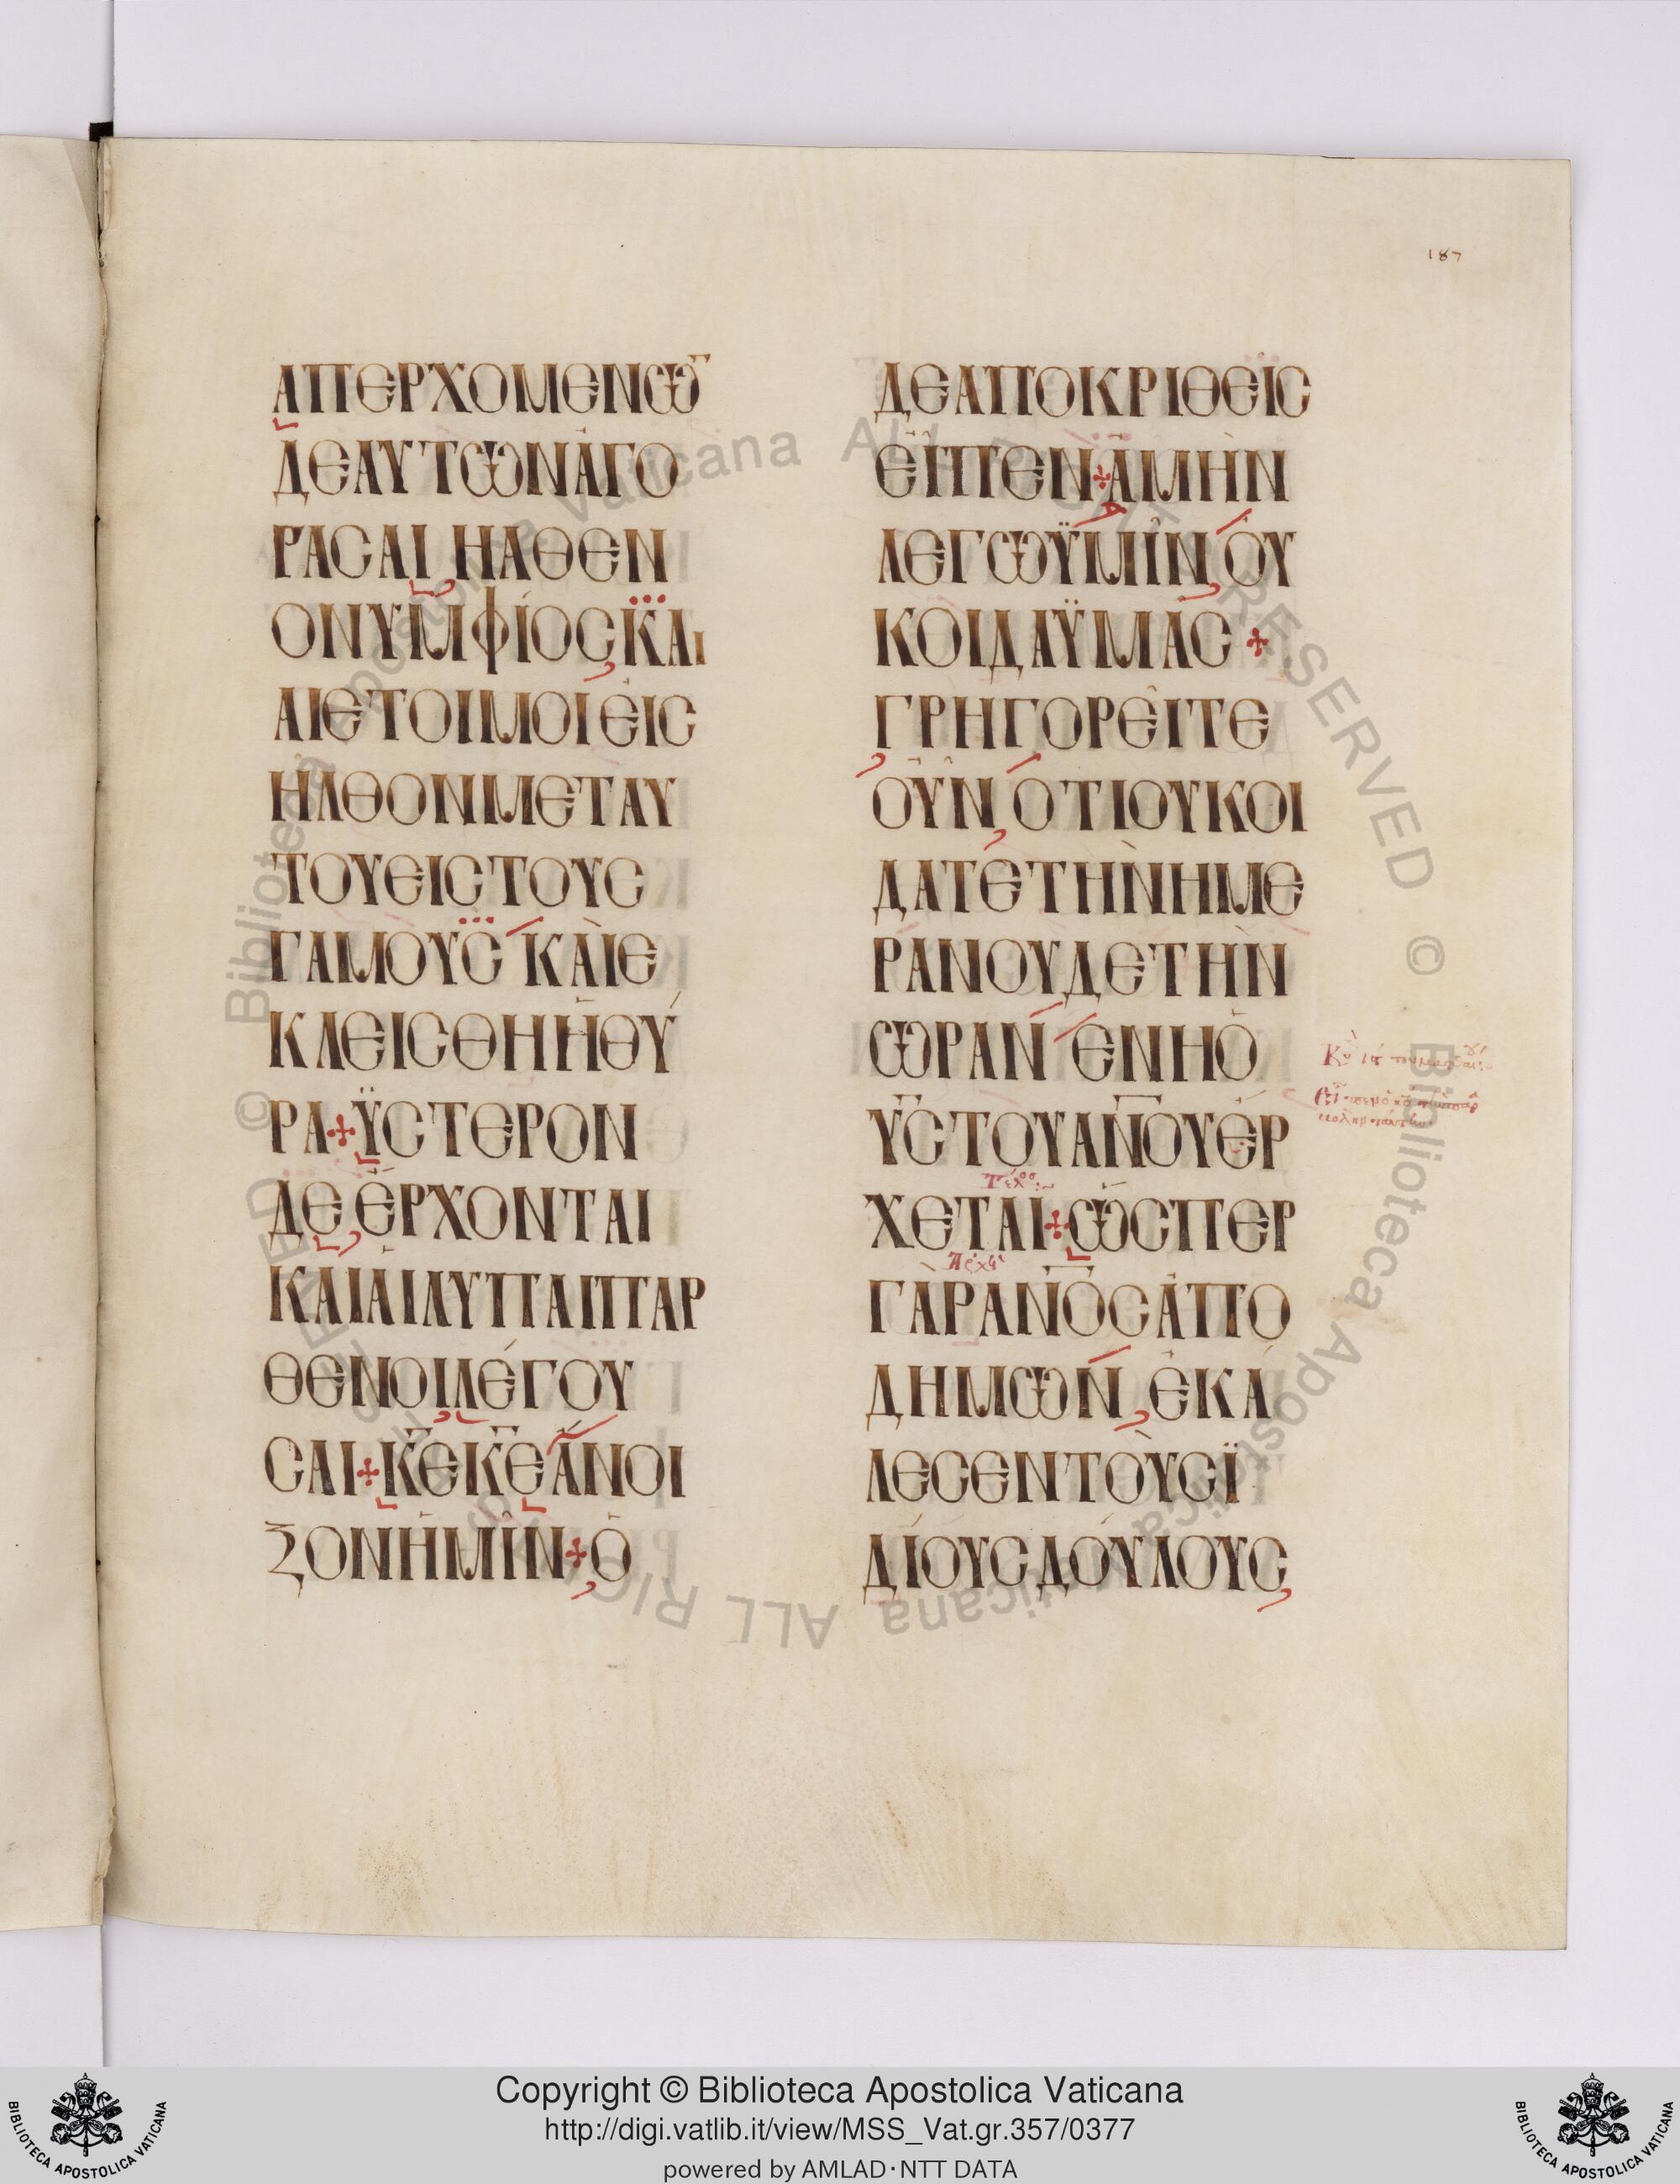 187
ΑΠΕΡΧΟΜΕΝΩ̅
ΔΕΑΥΤΩΝΑΓΟ
ΡΑΣΑΙ ΗΛΘΕΝ
ΟΝΥΜΦΙΟΣ ΚΑΙ
ΑΙΕΤΟΙΜΟΙΕΙΣ
ΗΛΘΟΝΜΕΤΑΥ
ΤΟΥΕΙΣΤΟΥΣ
ΓΑΜΟΥΣ ΚΑΙΕ
ΚΛΕΙΣΘΗΗΘΥ
ΡΑ+ΫΣΤΕΡΟΝ
ΔΕ ΕΡΧΟΝΤΑΙ
ΚΑΙΑΙΛΥΠΑΙΠΑΡ
ΘΕΝΟΙΛΕΓΟΥ
ΣΑΙ+Κ̅Ε̅Κ̅Ε̅ΑΝΟΙ
ΞΟΝΗΜΙΝ+Ο
ΔΕΑΠΟΚΡΙΘΕΙΣ
ΕΙΠΕΝ+ΑΜΗΝ
ΛΕΓΩΫΜΙΝ ΟΥ
ΚΟΙΔΑΫΜΑΣ+
ΓΡΗΓΟΡΕΙΤΕ
ΟΥΝ ΟΤΙΟΥΚΟΙ
ΔΑΤΕΤΗΝΗΜΕ
ΡΑΝΟΥΔΕΤΗΝ
ΩΡΑΝ ΕΝΗΟ
Υ̅Σ̅ΤΟΥΑ̅Ν̅Ο̅ΥΕΡ
ΧΕΤΑΙ+ΩΣΠΕΡ
ΓΑΡΑ̅Ν̅Ο̅ΣΑΠΟ
ΔΗΜΩΝ ΕΚΑ
ΛΕΣΕΝΤΟΥΣΪ
ΔΙΟΥΣΔΟΥΛΟΥΣ
© Biblioteca Apostolica Vaticana ALL RIGHTS RESERVED © Biblioteca Apostolica Vaticana ALL RIGHTS RESERVED
Copyright © Biblioteca Apostolica Vaticana
http://digi.vatlib.it/view/MSS_Vat.gr.357/0377
powered by AMLAD·NTT DATA
BIBLIOTECA APOSTOLICA VATICANA
BIBLIOTECA APOSTOLICA VATICANA